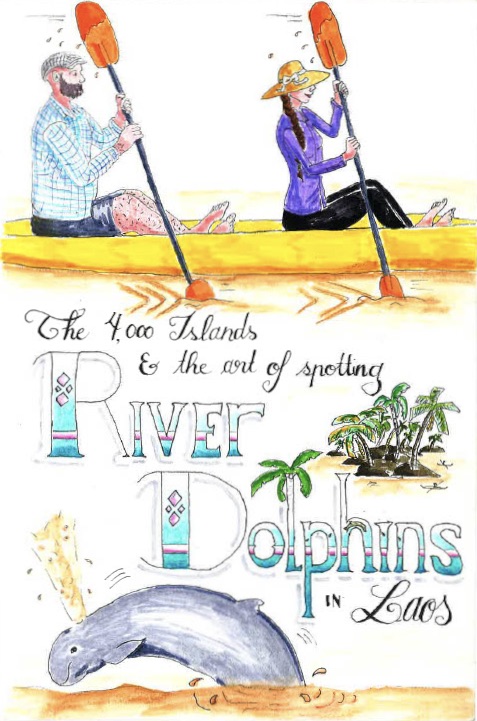 The 4,000 Islands
& the art of spotting
River
Dolphins
in Laos